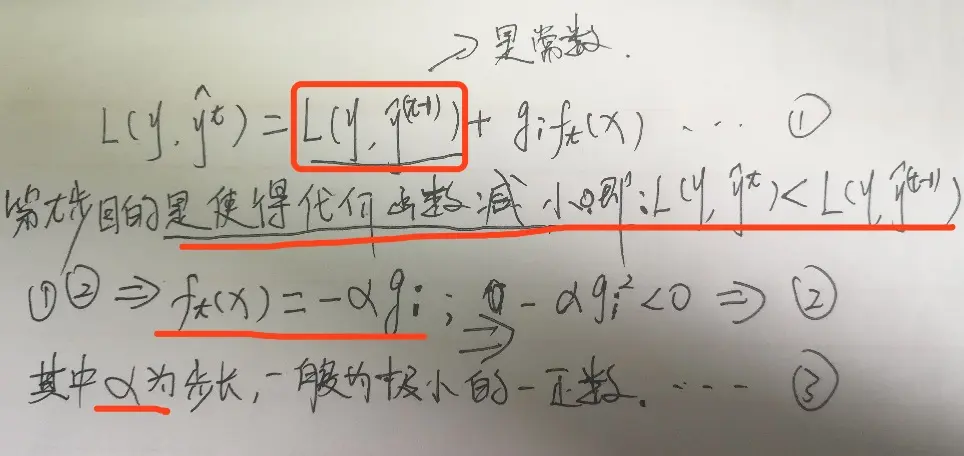 是常数.
L(y, ŷᵗ) = L(y, ŷ⁽ᵗ⁻¹⁾) + gᵢfₜ(x) ... ①
第t步目的是使得代价函数减小.即:L(y, ŷᵗ) < L(y, ŷ⁽ᵗ⁻¹⁾)
①② ⇒ fₜ(x) = -αgᵢ; -αgᵢ² < 0 ⇒ ②
其中α为步长,一般为极小的一正数. ... ③